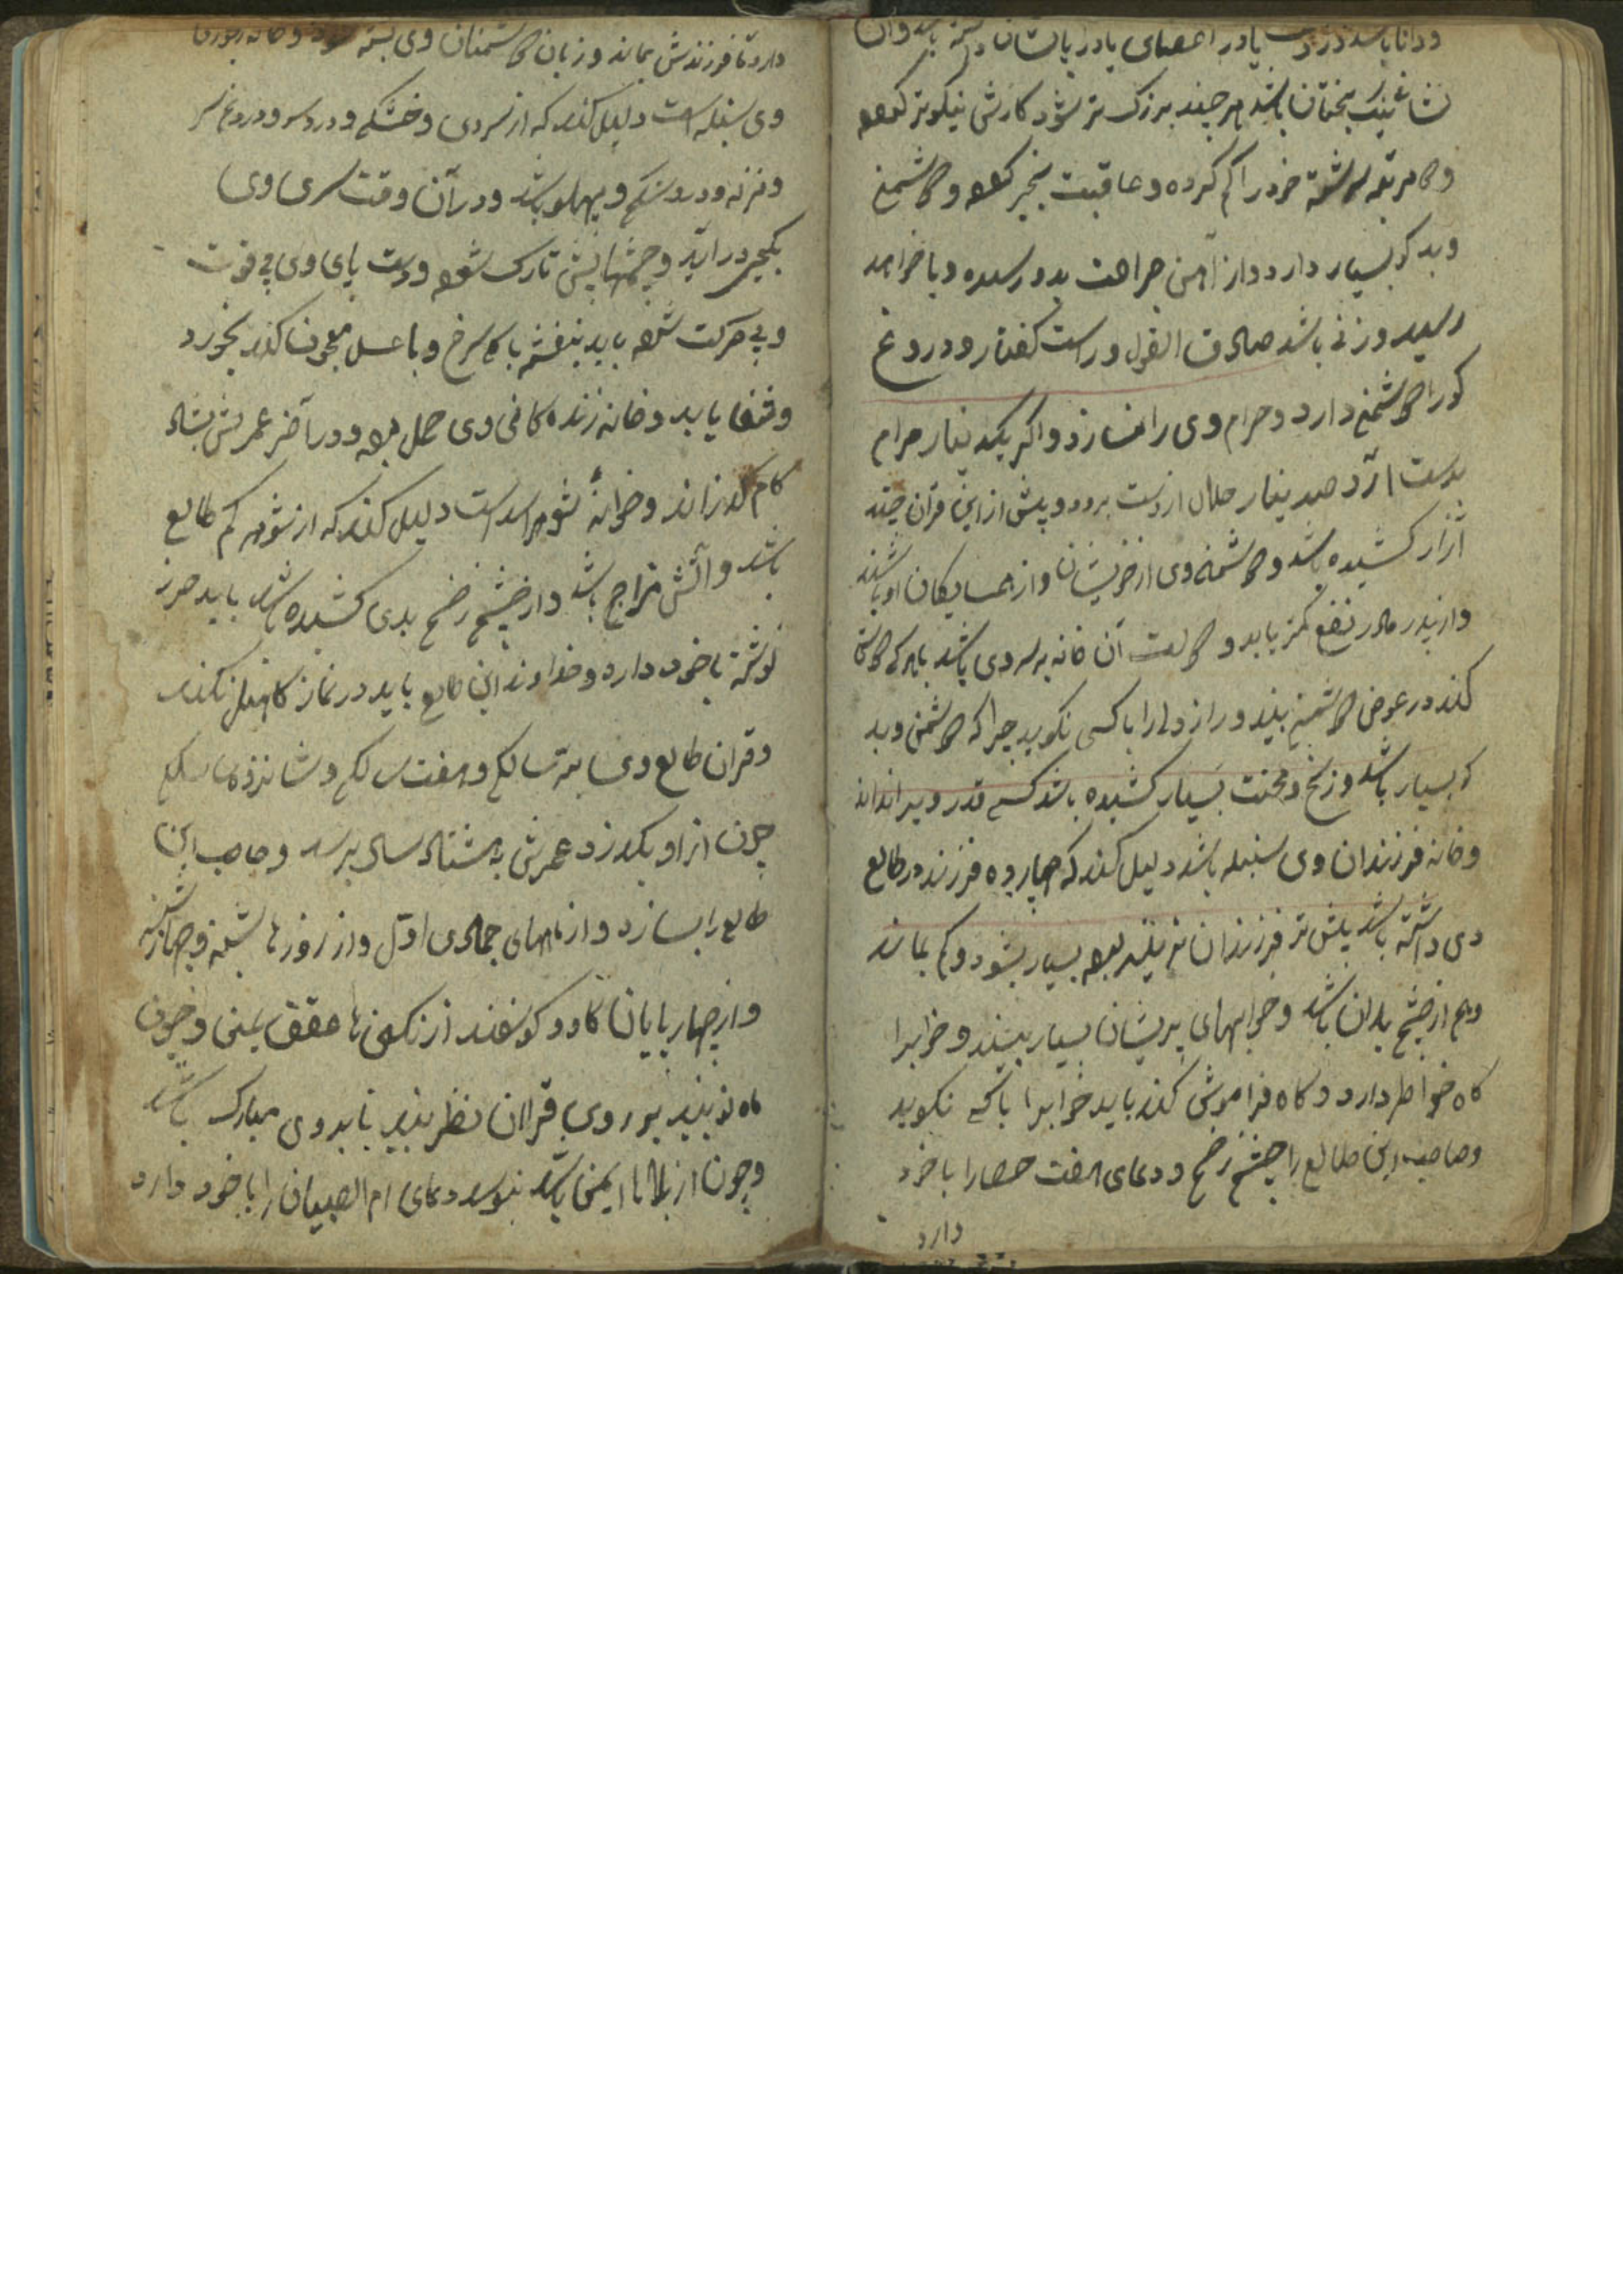 ودانا باشد در دست یا در اعضای یا در پایشان
نشا نیک بختان باشد هر چند بزرک تر شود کارش نیکوتر شود
و مرتبه سرشته خود را کم کرده و عاقبت بخیر شود و دشمن
و بد کو بسیار دارد و از آهن جراحت بدو رسیده و یا خواهد
رسید و زنی باشد صادق القول و راست کفتار و دروغ
کو را دشمن دارد و حرام وی را نسازد و اکر یکدینار حرام
بدست آرد صد دینار حلال از دست برود و پیش از این قرآن چند
آزار کشیده باشد و دشمنه وی از خویشان و از همسایکان او باشند
و از پدر مادر نفع کمتر یابد و دولت آن خانه بر سر وی باشد با هر که دوستی
کند در عوض دشمنی بیند و راز دلرا با کسی نکوید چرا که دشمن و بد
کو بسیار باشد و رنج و محنت بسیار کشیده باشد کسی قدر ویرا نداند
و خانه فرزندان وی سنبله باشد دلیل کند که چهار و ده فرزند در طالع
وی داشته باشد بیش تر فرزندان نرینه بود بسیار بشود و کم بماند
و هم از چشم بدان باشد و خوابهای پریشان بسیار بیند و خوابرا
کاه خواطر دارد و کاه فراموش کند باید خوابرا با کسی نکوید
و صاحب این طالع را چشم زخم و دعای هفت حصار را با خود
دارد
دارد تا فرزندش بماند و زبان دشمنان وی بسته شود و خانه
وی سنبله است دلیل کند که از سردی و خشکی و درد سر و درد
و نزله و درد شکم و پهلو باشد و در آن وقت سری وی
بکیجی در آید و چشمهایش تارک شود و دست پای وی بی قوت
و بی حرکت شود باید بنفشه با کل سرخ و با عسل معجون کند بخورد
و شفا یابد و خانه زنده کانی وی حمل بود و در آخر عمرش بشاد
کام کذراند و خانهٔ شوهر اسد است دلیل کند که از شوهر کم طالع
باشد و آتش مزاج باشد و از چشم زخم بدی کشیده باشد باید حرز
نوشته با خود دارد و خداوند این طالع باید در نماز کاهلی نکند
و قران طالع وی سه سالکی و هفت سالکی و شانزده سالکی
چون از او بکذرد عمرش به هشتاد سال برسد و صاحب این
طالع را بسازد و از ماههای جمادی اول و از روزها شنبه و چهارشنبه
و از چهار پایان کاو و کوسفند از نکین ها عقیق یمنی و چون
ماه نو بیند بر روی قران نظر باید تا بر وی مبارک باشد
و چون از بلاها ایمن باشد بنویسد دعای ام الصبیان را با خود دارد